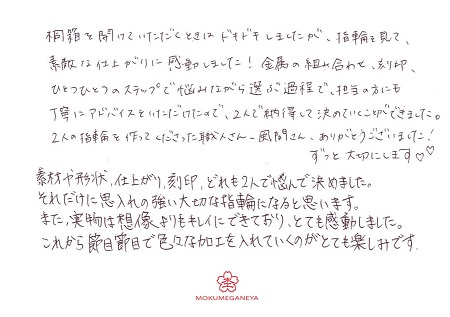 桐箱を開けていただくときはドキドキしましたが、指輪を見て、
素敵な仕上がりに感動しました！金属の組み合わせ、刻印、
ひとつひとつのステップで悩みながら選ぶ過程で、担当の方にも
丁寧にアドバイスをいただけたので、2人で納得して決めていくことができました。
2人の指輪を作ってくださった職人さん－風間さん、ありがとうございました！
ずっと大切にします♡♡
素材や形状、仕上がり、刻印、どれも2人で悩んで決めました。
それだけに思入れの強い大切な指輪になると思います。
また、実物は想像よりもキレイにできており、とても感動しました。
これから節目節目で色々な加工を入れていくのがとても楽しみです。
MOKUMEGANEYA